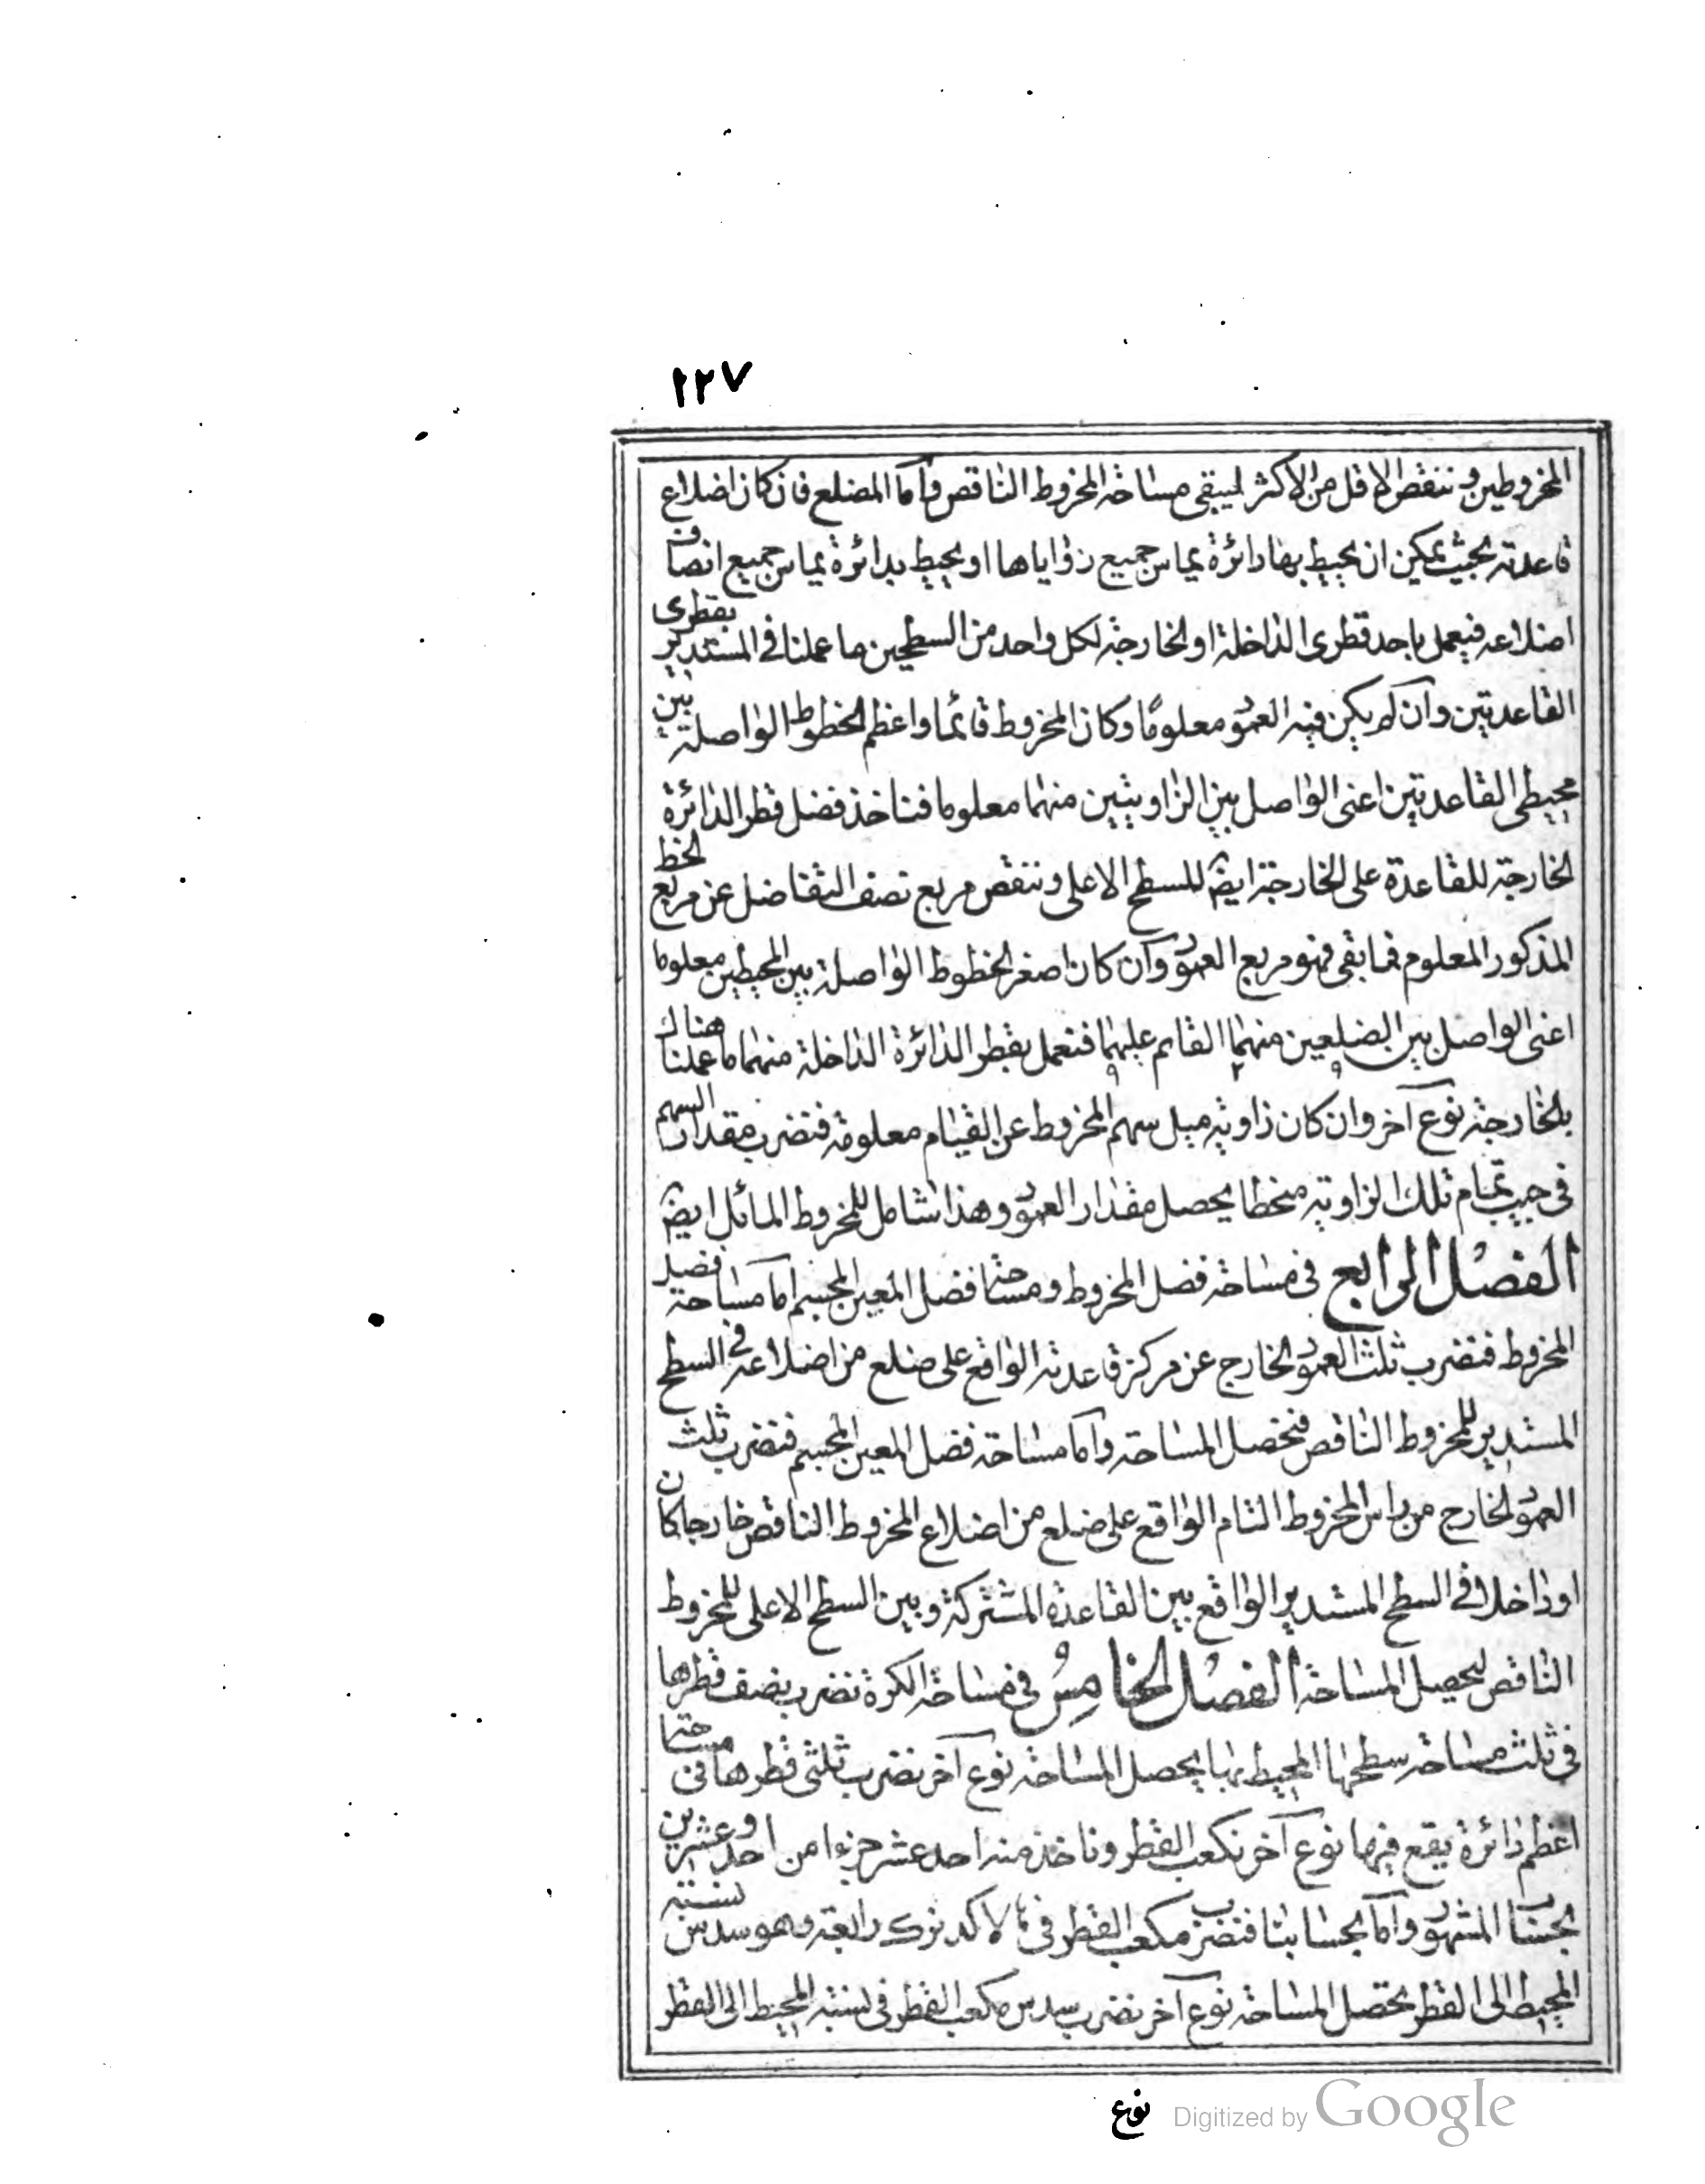 ١٢٧
المخروطين وننقص الاقل من الاكثر ليبقى مساحة المخروط الناقص وأما المضلع فان كان اضلاع
قاعدته بحيث يمكن ان يحيط بها دائرة يماس جميع زواياها او يحيط بدائرة يماس جميع انصاف
اضلاعه فيعمل باحد قطرى الداخلة او الخارجة لكل واحد من السطحين ما عملنا في المستدير بقطرى
القاعدتين وان لم يكن فيه العمود معلومًا وكان المخروط قائما واعظم الخطوط الواصلة بين
محيطى القاعدتين اعنى الواصل بين الزاويتين منهما معلوما فناخذ فضل قطر الدائرة
الخارجة للقاعدة على الخارجة ايضً للسطح الاعلى وننقص مربع نصف التفاضل عن مربع الخط
المذكور المعلوم فما بقى فهو مربع العمود وآن كان اصغر الخطوط الواصلة بين المحيطين معلوما
اعنى الواصل بين الضلعين منهما القائم عليهما فنعمل بقطر الدائرة الداخلة منهما ما عملنا هناك
بالخارجة نوع آخر وان كان زاوية ميل سهم المخروط عن القيام معلومة فنضرب مقدار السهم
فى جيب تمام تلك الزاوية منحطا يحصل مقدار العمود وهذا شامل للمخروط المائل ايضً
الفصل الرابع فى مساحة فضل المخروط ومساحة فضل المعين المجسم اما مساحة فضل
المخروط فنضرب ثلث العمود الخارج عن مركز قاعدته الواقع على ضلع من اضلاعه فى السطح
المستدير للمخروط الناقص فيحصل المساحة وأما مساحة فضل المعين المجسم فنضرب ثلث
العمود الخارج من راس المخروط التام الواقع على ضلع من اضلاع المخروط الناقص خارجا كان
او داخلا فى السطح المستدير الواقع بين القاعدة المشتركة وبين السطح الاعلى للمخروط
الناقص ليحصل المساحة الفصل الخامس فى مساحة الكرة نضرب نصف قطرها
فى ثلث مساحة سطحها المحيط بها يحصل المساحة نوع آخر نضرب ثلثى قطرها فى مساحة
اعظم دائرة يقع فيها نوع آخر نكعب القطر وناخذ منه احد عشر جزءا من احد وعشرين
بحساب المشهور وأما بحسابنا فنضرب مكعب القطر فى لا كد نرك رابعة وهو سدس نسبة
المحيط الى القطر يحصل المساحة نوع آخر نضرب سدس مكعب القطر فى نسبة المحيط الى القطر
نوع
Digitized by Google